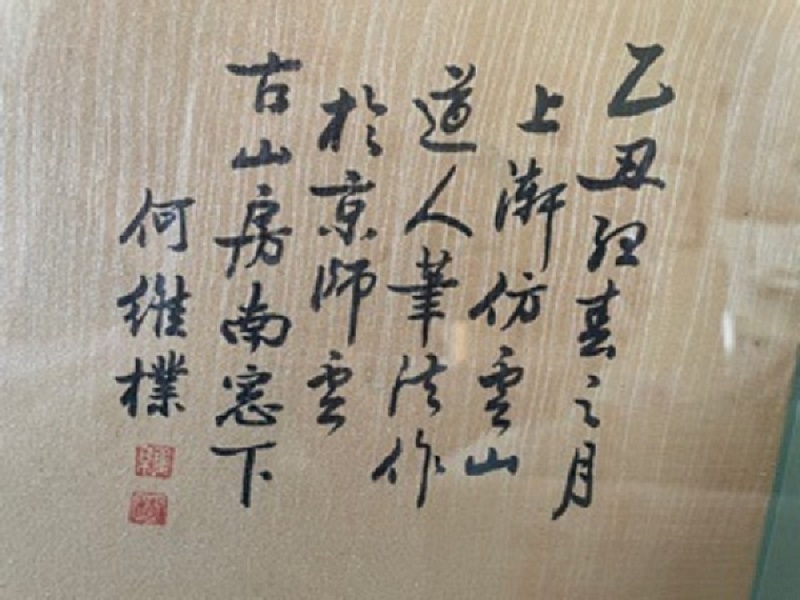 乙丑春之月
上澣仿雲山
道人筆法作
於京師雲
古山房南窓下
何維樸